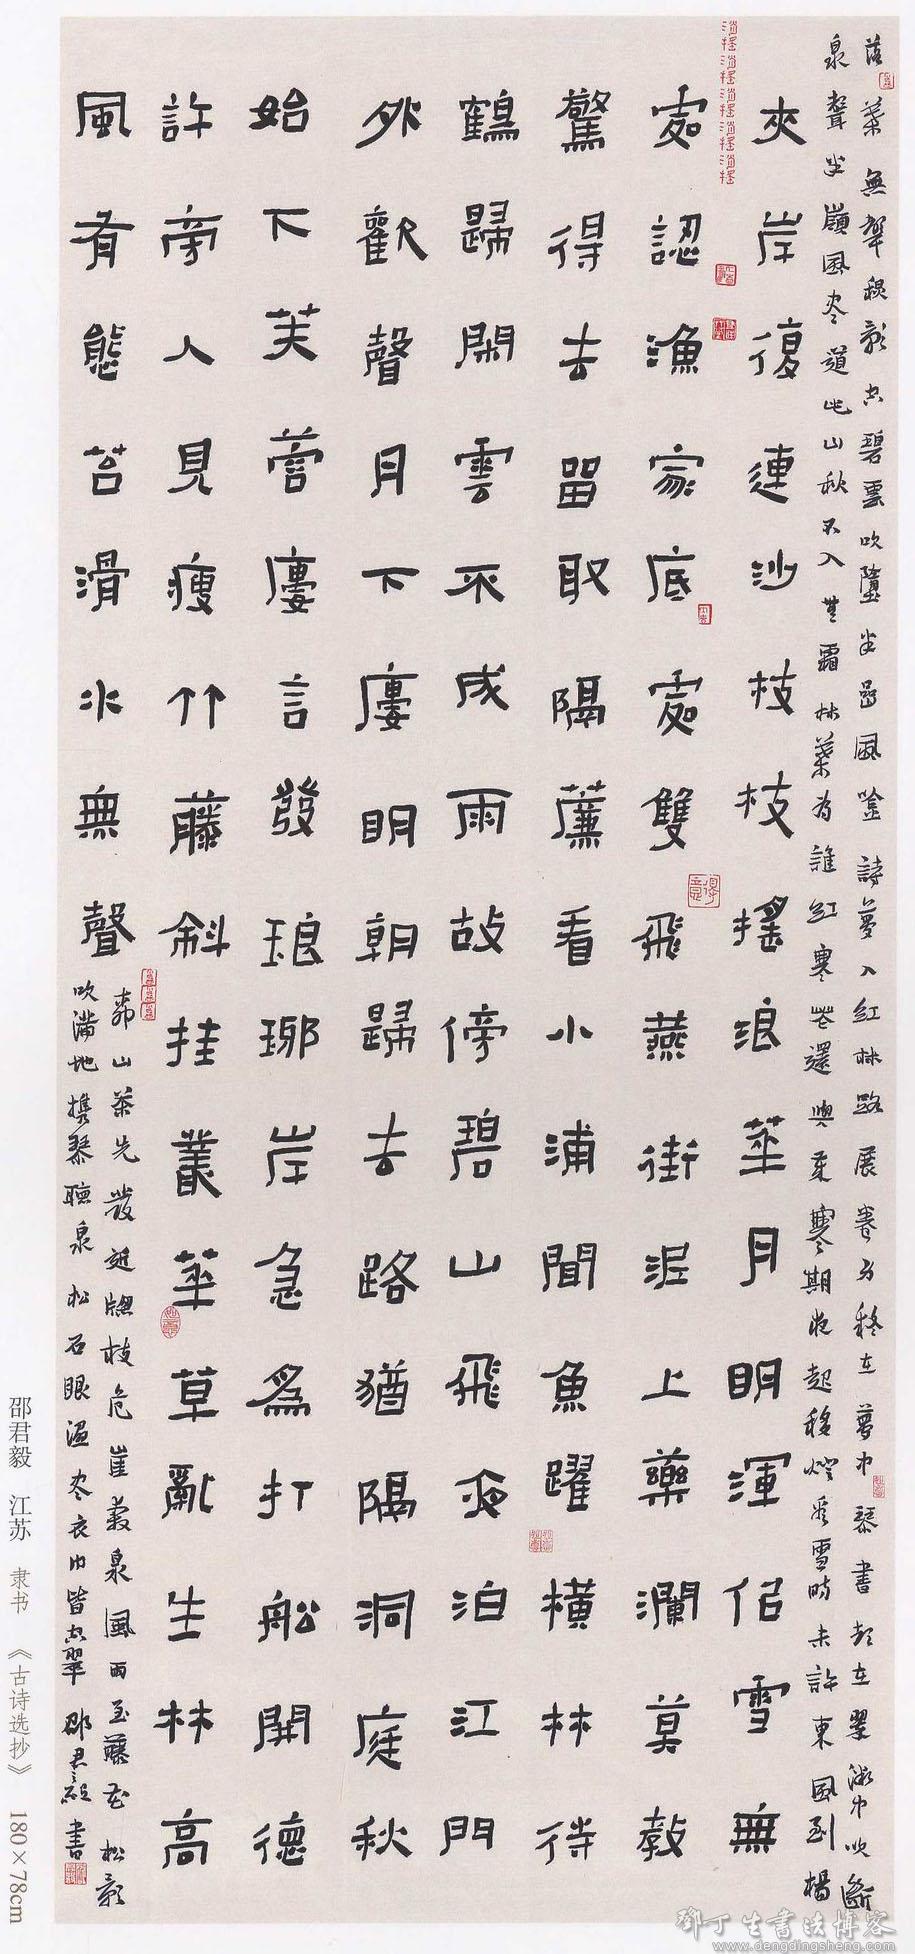 落葉無聲穩影空碧雲吹墮半風詩夢入紅林路展卷身移在夢中琴書都在翠微中吹斷
泉聲半嶺風道山秋不入霜林葉為誰紅寒花還與寒期夜起移燈看雪時未許東風到楊
夾岸復連沙枝枝搖浪華月明渾侶雪無
處認漁家底處雙飛燕銜泥上藥瀾莫教
驚得去留取隔簾看小浦聞魚躍橫林待
鶴歸閑雲不成雨故傍碧山飛夜泊江門
外歡聲月下廔明朝歸去路猶隔洞庭秋
始下芙蓉廔言發琅琊岸急為打船開德
許旁人見瘦竹藤斜挂叢華草亂生林高
風有態苔滑水無聲
山茶先發枝危崖泉風雨至藤花松影
吹滿地携琴聽泉松石眼温衣巾皆空翠邵君毅書
邵君毅 江苏 隶书 《古诗选抄》 180×78cm
鄧丁生書法博客
www.dengdingsheng.com